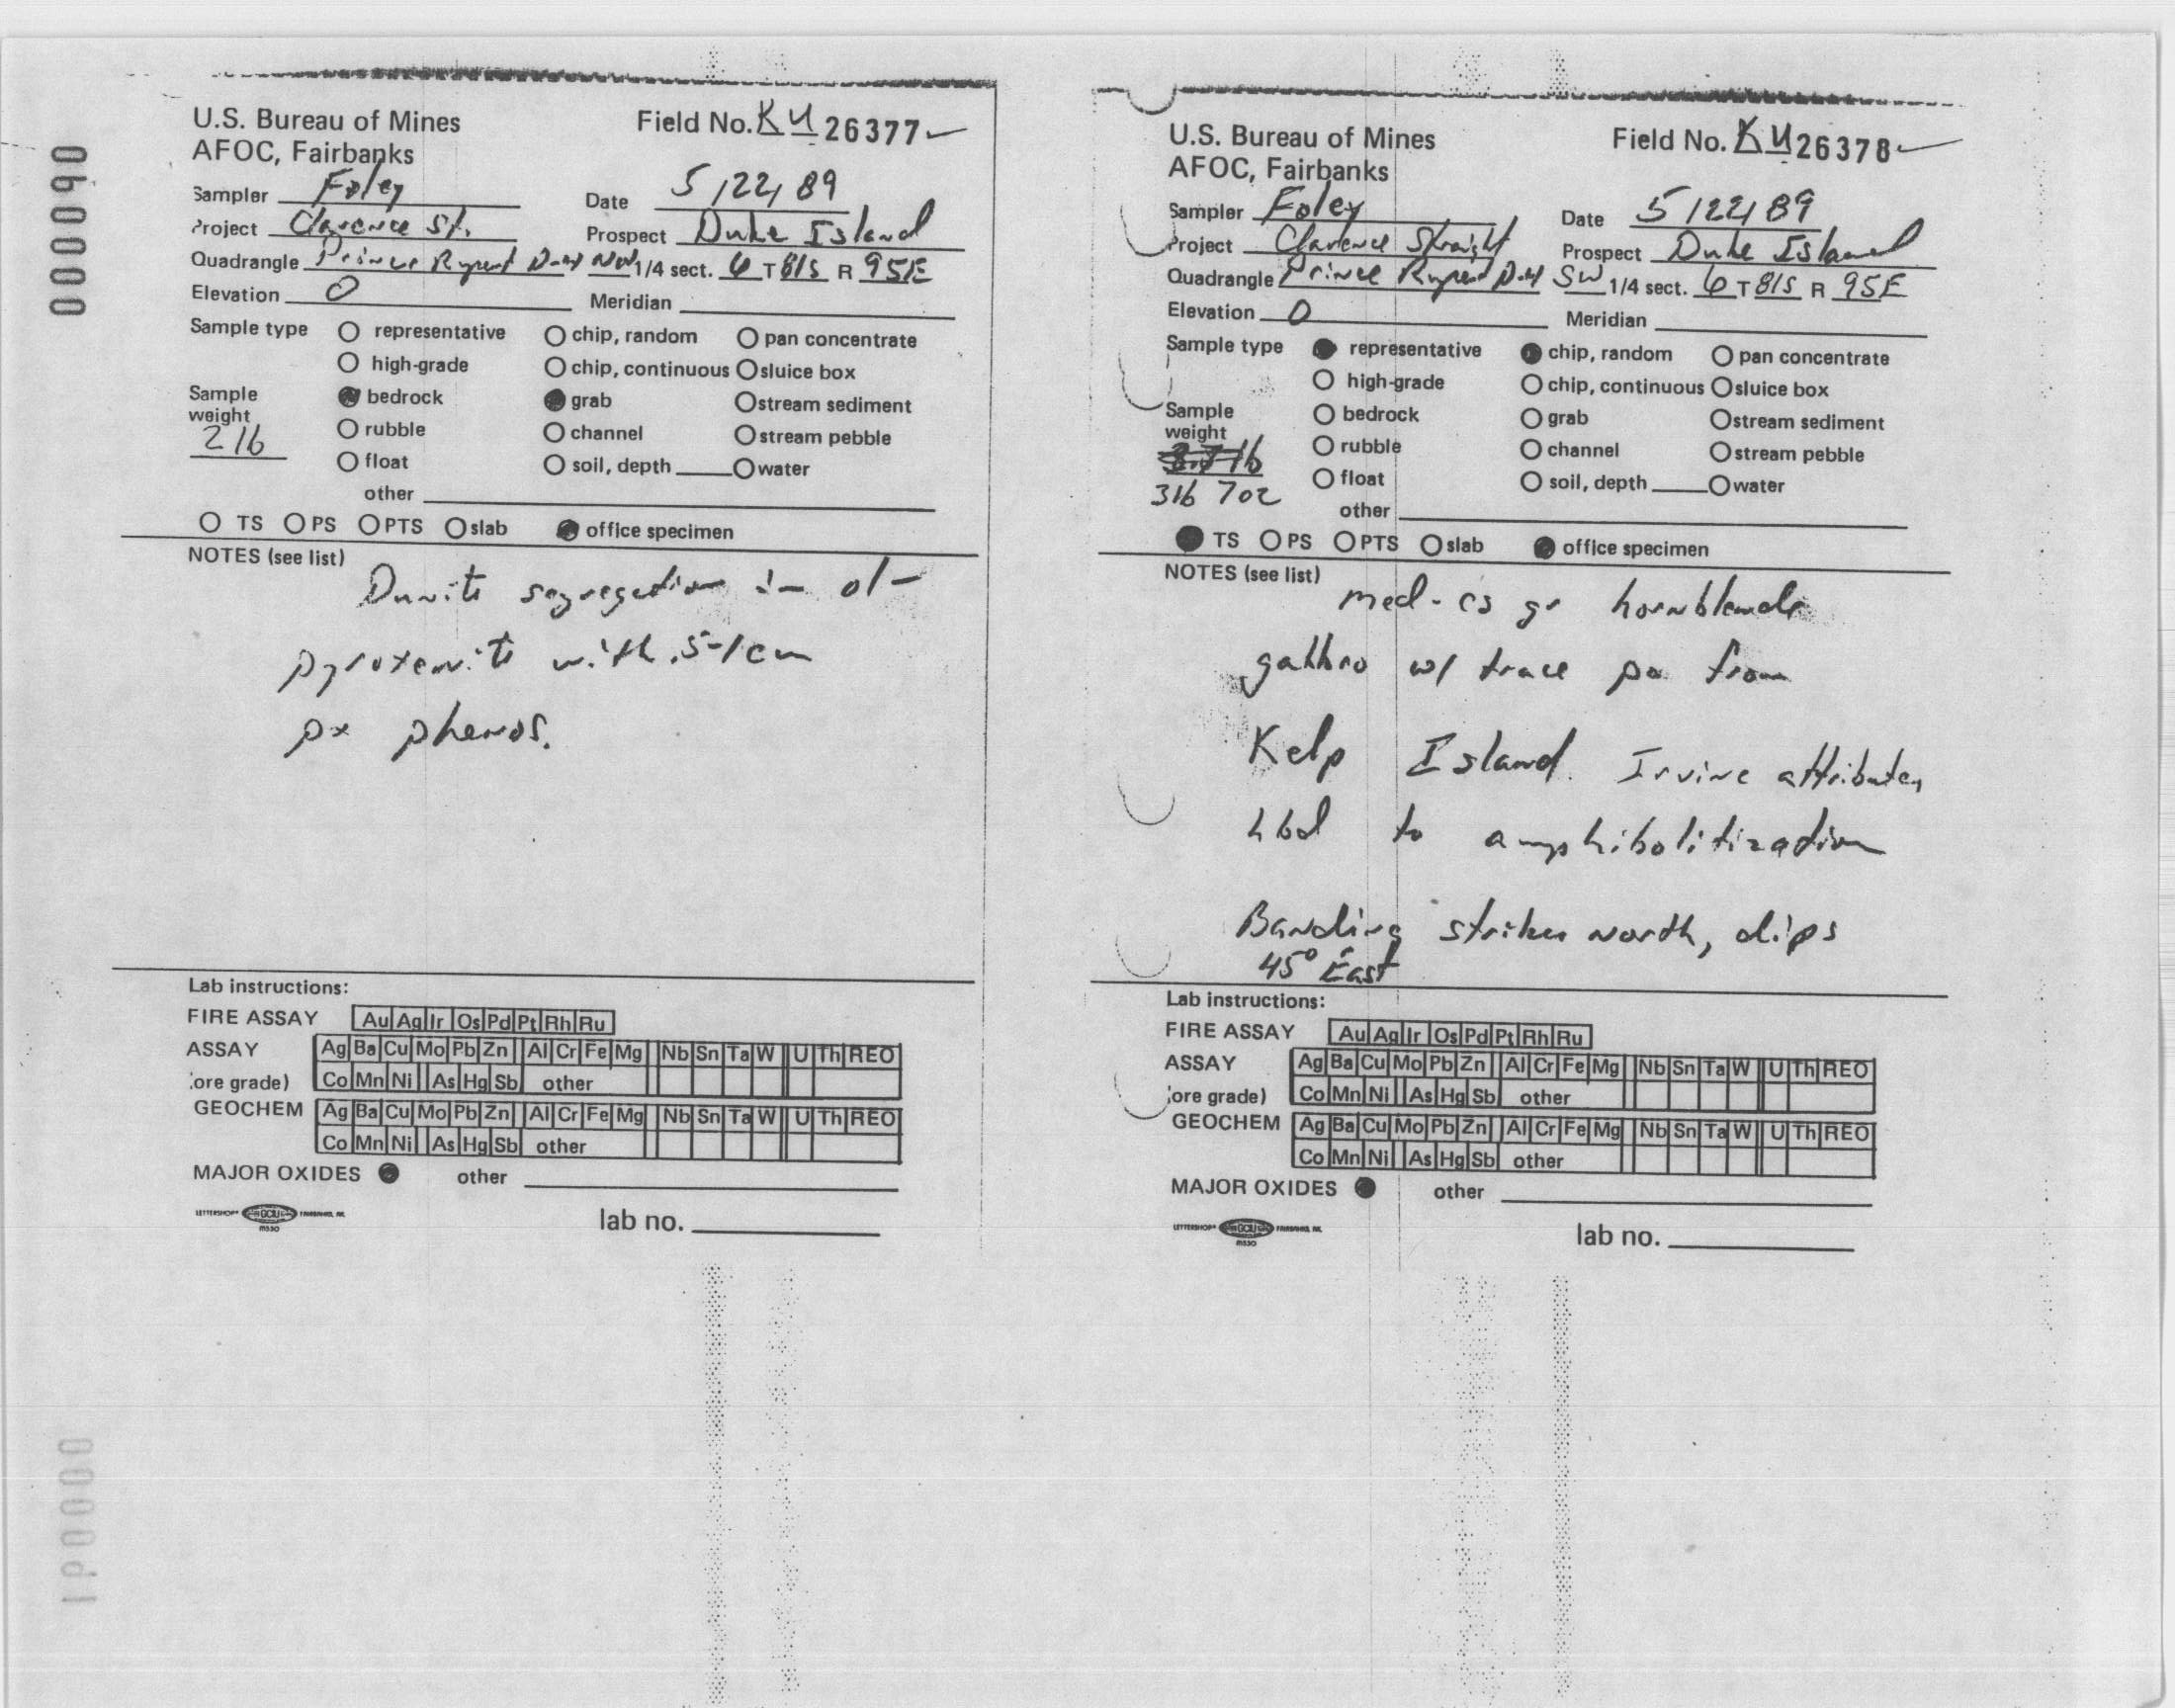 000090
U.S. Bureau of Mines
AFOC, Fairbanks
Field No. KU 26377
Sampler Foley
Date 5/22/89
Project Clarence St.
Prospect Duke Island
Quadrangle Prince Rupert D-4 NW 1/4 sect. 6 T 81S R 95E
Elevation 0
Meridian
Sample type representative chip, random pan concentrate
high-grade chip, continuous sluice box
Sample weight bedrock grab stream sediment
2 lb rubble channel stream pebble
float soil, depth water
other
TS PS PTS slab office specimen
NOTES (see list)
Dunite segregation in ol-
pyroxenite with .5-1cm
px phenos.
Lab instructions:
FIRE ASSAY Au Ag Ir Os Pd Pt Rh Ru
ASSAY Ag Ba Cu Mo Pb Zn Al Cr Fe Mg Nb Sn Ta W U Th REO
ore grade) Co Mn Ni As Hg Sb other
GEOCHEM Ag Ba Cu Mo Pb Zn Al Cr Fe Mg Nb Sn Ta W U Th REO
Co Mn Ni As Hg Sb other
MAJOR OXIDES other
lab no.
U.S. Bureau of Mines
AFOC, Fairbanks
Field No. KU 26378
Sampler Foley
Date 5/22/89
Project Clarence Straight
Prospect Duke Island
Quadrangle Prince Rupert D-4 SW 1/4 sect. 6 T 81S R 95E
Elevation 0
Meridian
Sample type representative chip, random pan concentrate
high-grade chip, continuous sluice box
Sample weight bedrock grab stream sediment
rubble channel stream pebble
3lb 7oz float soil, depth water
other
TS PS PTS slab office specimen
NOTES (see list)
med-cs gr hornblende
gabbro w/ trace po from
Kelp Island. Irvine attributes
hbd to amphibolitization
Banding strikes north, dips
45° East
Lab instructions:
FIRE ASSAY Au Ag Ir Os Pd Pt Rh Ru
ASSAY Ag Ba Cu Mo Pb Zn Al Cr Fe Mg Nb Sn Ta W U Th REO
ore grade) Co Mn Ni As Hg Sb other
GEOCHEM Ag Ba Cu Mo Pb Zn Al Cr Fe Mg Nb Sn Ta W U Th REO
Co Mn Ni As Hg Sb other
MAJOR OXIDES other
lab no.